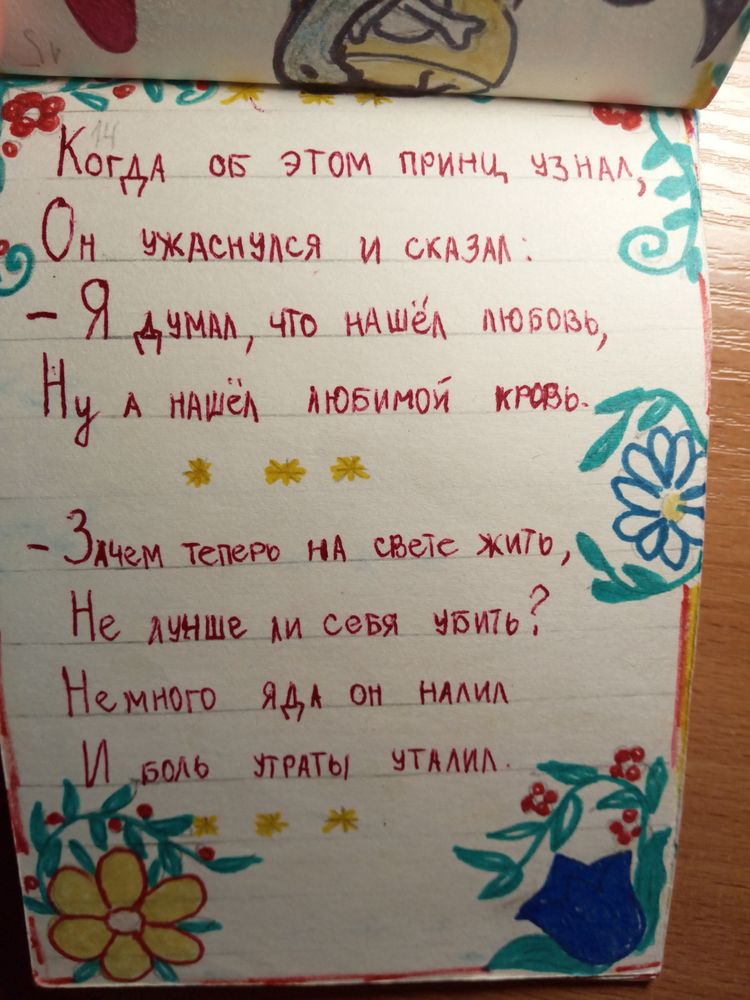 14
Когда об этом принц узнал,
Он ужаснулся и сказал:
- Я думал, что нашёл любовь,
Ну а нашёл любимой кровь.
* * *
- Зачем теперь на свете жить,
Не лучше ли себя убить?
Немного яда он налил
И боль утраты уталил.
* * *